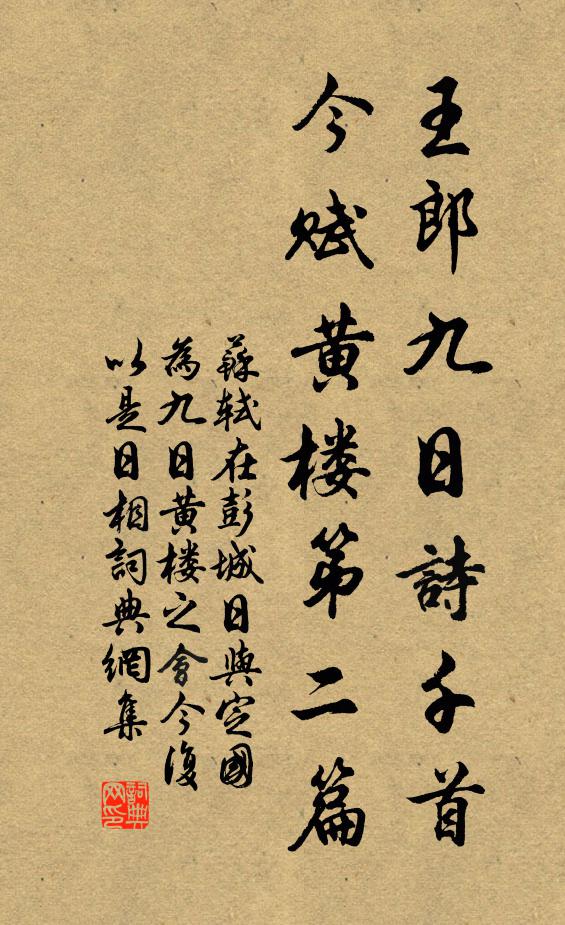 王郎九日詩千首
今賦黄楼第二篇
蘇軾在彭城日與定國
為九日黄楼之會今復
以是日相詞典網集
詞典
网印